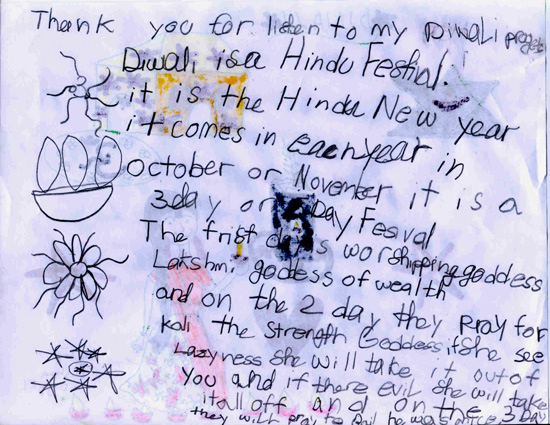 Thank you for listen to my Diwali
Diwali is a Hindu Festival.
it is the Hindu New year
it comes in each year in
October or November it is a
3 day or Day Fesival
The frist day is worshipping goddess
Lakshmi goddess of wealth
and on the 2 day they pray for
kali the strength Goddess if She see
Lazyness she will take it out of
you and if there evil she will take
it all off and on the 3 Day
they will pray to he was